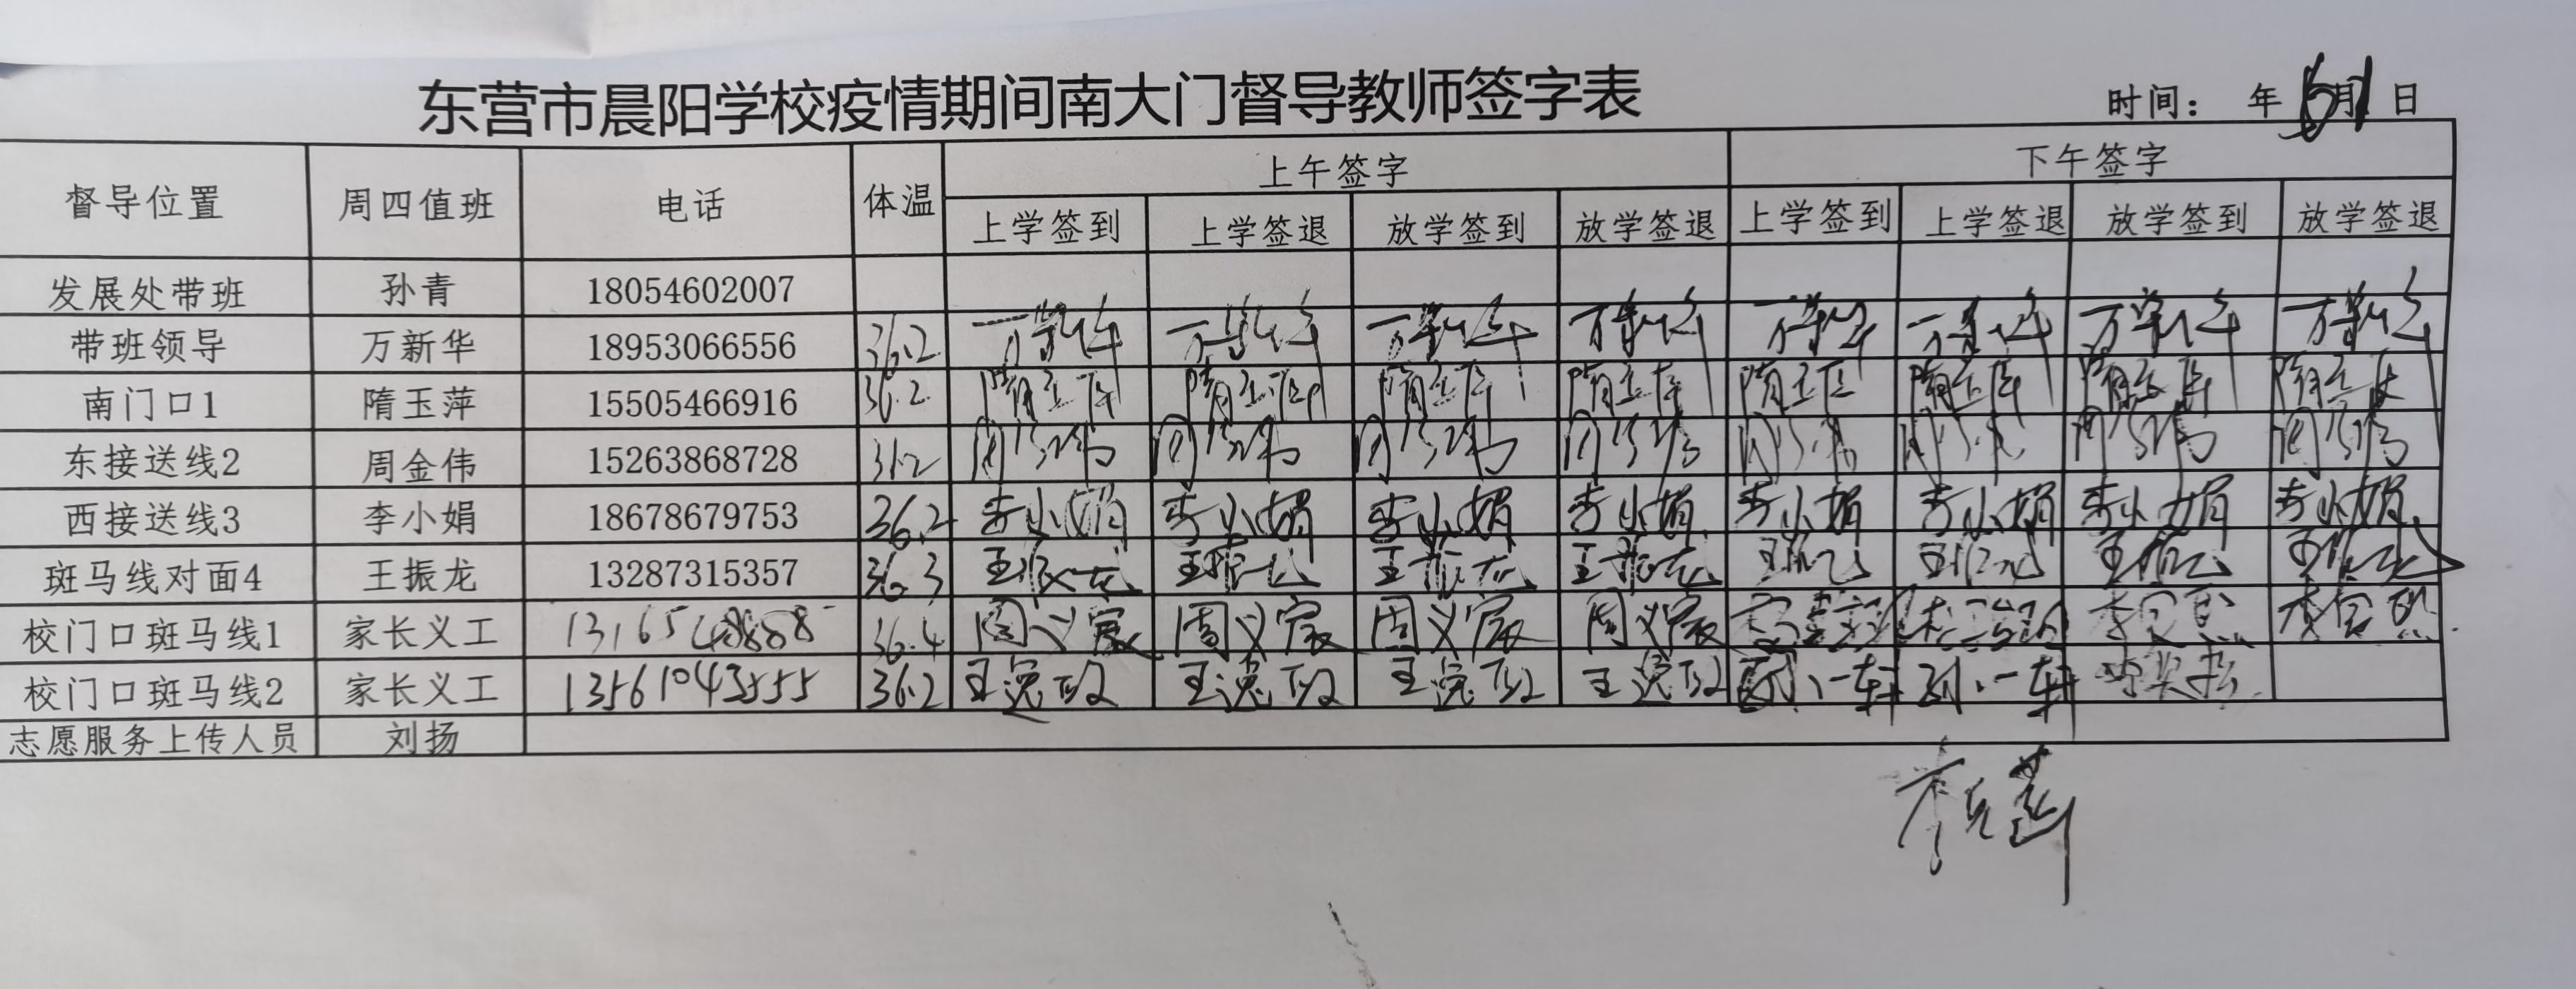 东营市晨阳学校疫情期间南大门督导教师签字表
时间： 年 月1日
督导位置 周四值班 电话 体温 上午签字 下午签字
上学签到 上学签退 放学签到 放学签退 上学签到 上学签退 放学签到 放学签退
发展处带班 孙青 18054602007
带班领导 万新华 18953066556 36.2 万新华 万新华 万新华 万新华 万新华 万新华 万新华 万新华
南门口1 隋玉萍 15505466916 36.2 隋玉萍 隋玉萍 隋玉萍 隋玉萍 隋玉萍 隋玉萍 隋玉萍 隋玉萍
东接送线2 周金伟 15263868728 周金伟 周金伟 周金伟 周金伟 周金伟 周金伟 周金伟 周金伟
西接送线3 李小娟 18678679753 36.2 李小娟 李小娟 李小娟 李小娟 李小娟 李小娟 李小娟 李小娟
斑马线对面4 王振龙 13287315357 36.3 王振龙 王振龙 王振龙 王振龙 王振龙 王振龙 王振龙 王振龙
校门口斑马线1 家长义工 36.4 周义宸 周义宸 周义宸 周义宸
校门口斑马线2 家长义工 13561043555 36.2 王逸 王逸 王逸 王逸
志愿服务上传人员 刘扬